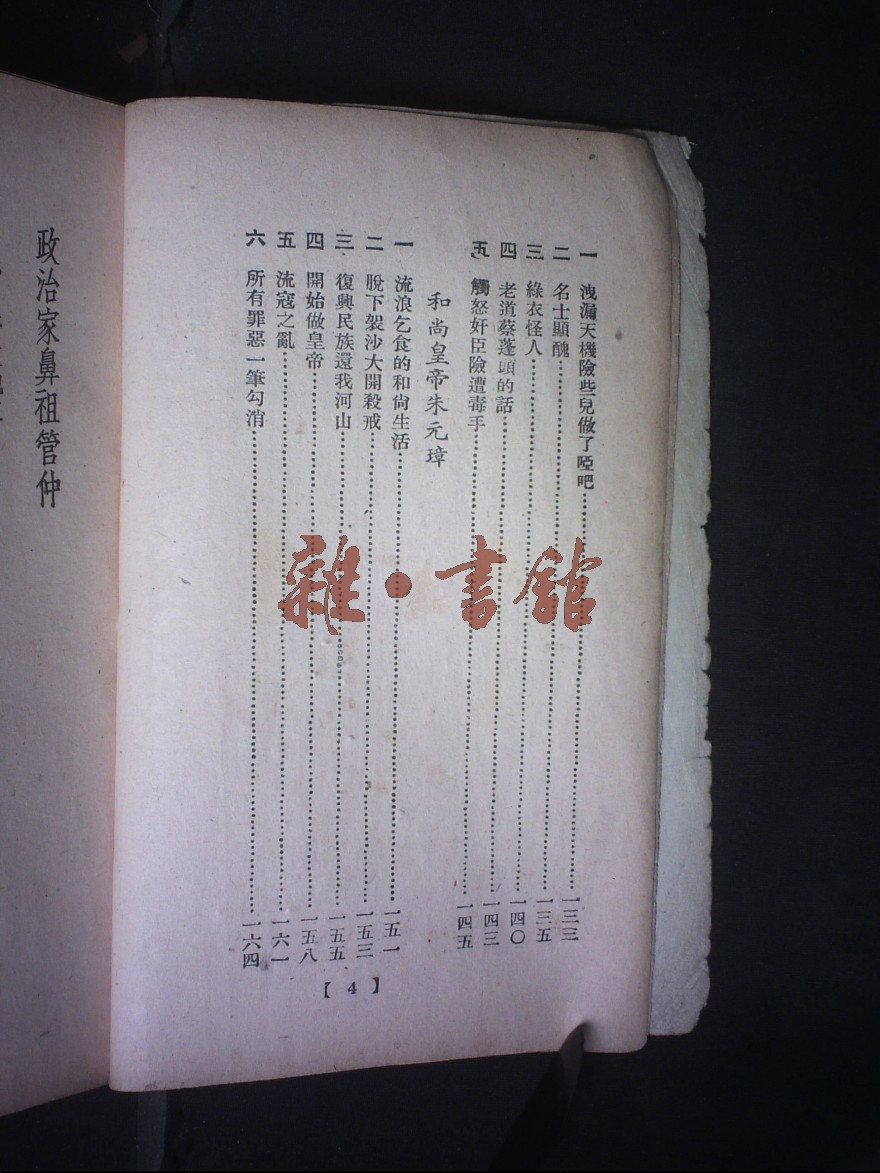 一 洩漏天機險些兒做了啞吧……一三三
二 名士顯醜……一三五
三 綠衣怪人……一四〇
四 老道蔡蓬頭的話……一四三
五 觸怒奸臣險遭毒手……一四五
和尚皇帝朱元璋
一 流浪乞食的和尙生活……一五一
二 脫下袈沙大開殺戒……一五三
三 復興民族還我河山……一五五
四 開始做皇帝……一五八
五 流寇之亂……一六一
六 所有罪惡一筆勾消……一六四
【4】
政治家鼻祖管仲
雜·書館